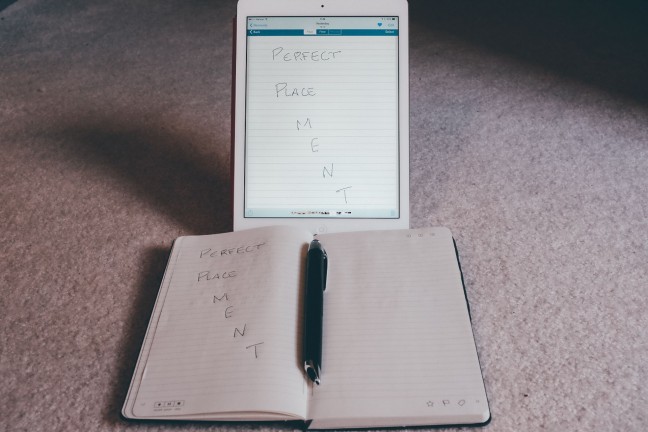 PERFECT
PLACE
M
E
N
T
PERFECT
PLACE
M
E
N
T